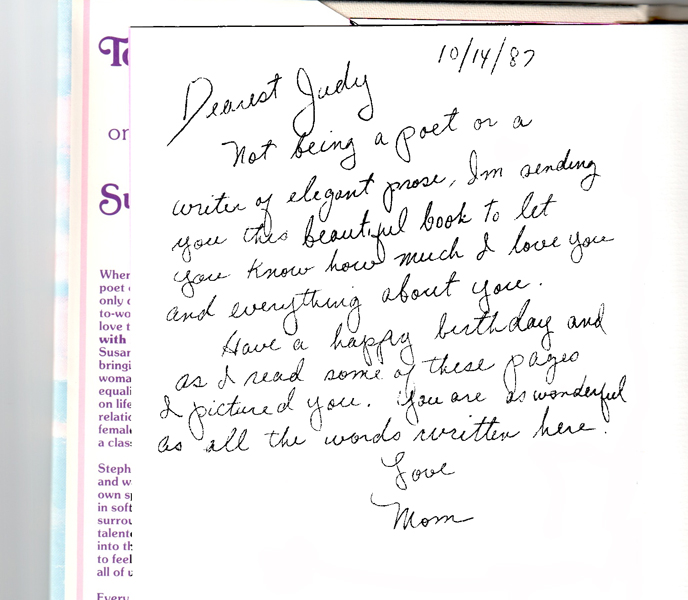 10/14/87
Dearest Judy
Not being a poet or a
writer of elegant prose, Im sending
you this beautiful book to let
you know how much I love you
and everything about you.
Have a happy birthday and
as I read some of these pages
I pictured you. You are as wonderful
as all the words written here.
Love
Mom
To
or
Su
When
poet
only
to-wo
love t
with
Susan
bringi
woma
equali
on life
relatio
female
a clas
Steph
and w
own sp
in soft
surrou
talente
into th
to feel
all of u
Every